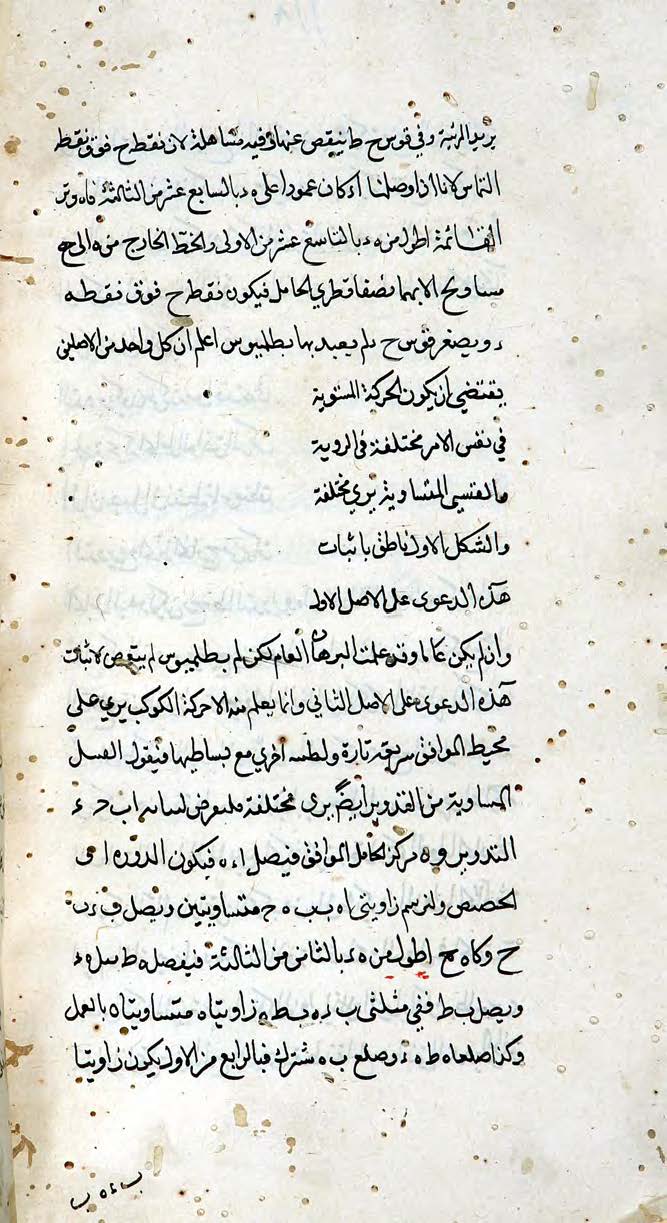 يريد المرئية وفي قوس ح ط ينقص عنها وفيه مساهلة لان نقطه ح فوق نقطه
التماس لانا اذا وصلنا اء كان عمودا على ه ء بالسابع عشر من الثالثة فاه وتر
القائمة اطول من ه ء بالتاسع عشر من الاولى والخط الخارج من ه الى ح
مساو لح لانهما نصفا قطري الحامل فيكون نقطه ح فوق نقطه
ء ويصغر قوس ح ولم يعبد بها بطلميوس اعلم ان كل واحد من الاصلين
يقتضي ان يكون الحركة المستوية
في نفس الامر مختلفة في الروية
والقسي المتساوية يرى مختلفة
والشكل الاول ناطق باثبات
هذه الدعوى على الاصل الاول
وان لم يكن عاما وقد علمت البرهان العام لكن لم بطلميوس لم يتعرض لاثبات
هذه الدعوى على الاصل الثاني وانما يعلم منه الا حركة الكوكب يرى على
محيط الموافق سريعه تارة وبطيئه اخرى مع بساطتها فيقول القسي
المساوية من التدوير ايضا يرى مختلفة فليعرض لبيانه اب ح ء
التدوير و ه مركز الحامل الموافق فيصل اء ه فيكون الدورة ا ى
الحضيض ولنرسم زاويتي اه ب ب ه ح متساويتين ويصل ب ء ب
ح وكان ه ح اطول من ه ء بالثامن من الثالثة فيفصل ه ط مثل ه ء
ويصل ب ط ففي مثلثي ب ء ه ب ط ه زاويتاه متساويتان بالعمل
وكذا ضلعا ه ط ه ء وضلع ب ه مشترك فبالرابع من الاولى يكون زاويتا
ب ء ه ب